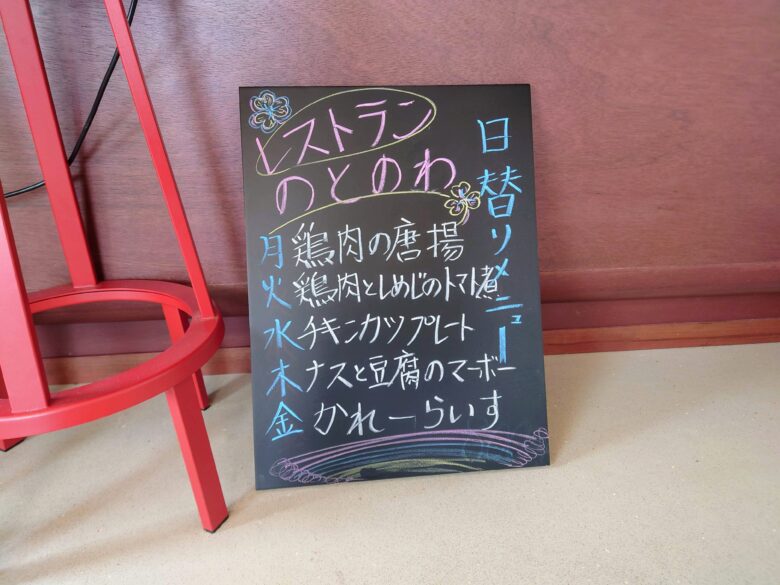 レストラン
のとのわ
日替りメニュー
月 鶏肉の唐揚
火 鶏肉としめじのトマト煮
水 チキンカツプレート
木 ナスと豆腐のマーボー
金 かれーらいす